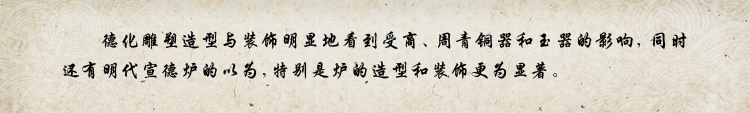 德化雕塑造型与装饰明显地看到受商、周青铜器和玉器的影响，同时
还有明代宣德炉的以为，特别是炉的造型和装饰更为显著。